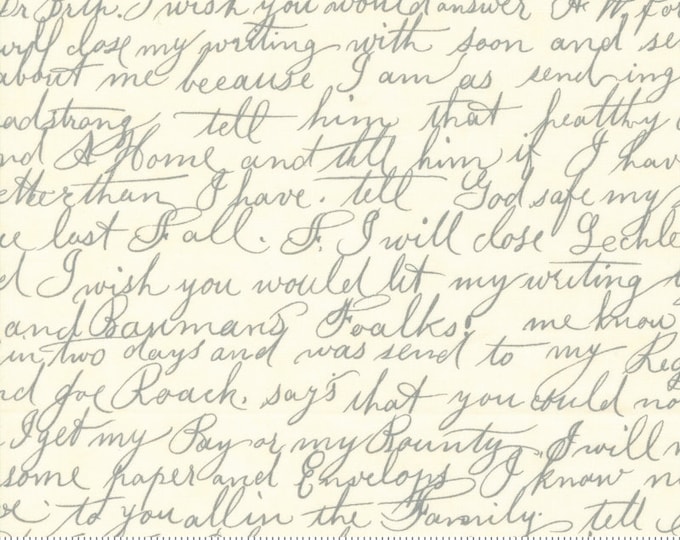 I wish you would answer
will close my writing with soon and se
about me because I am as sending
adstrong tell him that healthy
nd A Home and till him if I hav
etter than I have. tell God safe my
ce last Fall. F. I will close Lechle
d I wish you would let my writing
and Bauman's Foalks. me know
in two days and was send to my Reg
nd Joe Roach. say's that you could no
I get my Pay or my Bounty I will
some paper and Envelops I know n
e to you all in the Family. tell